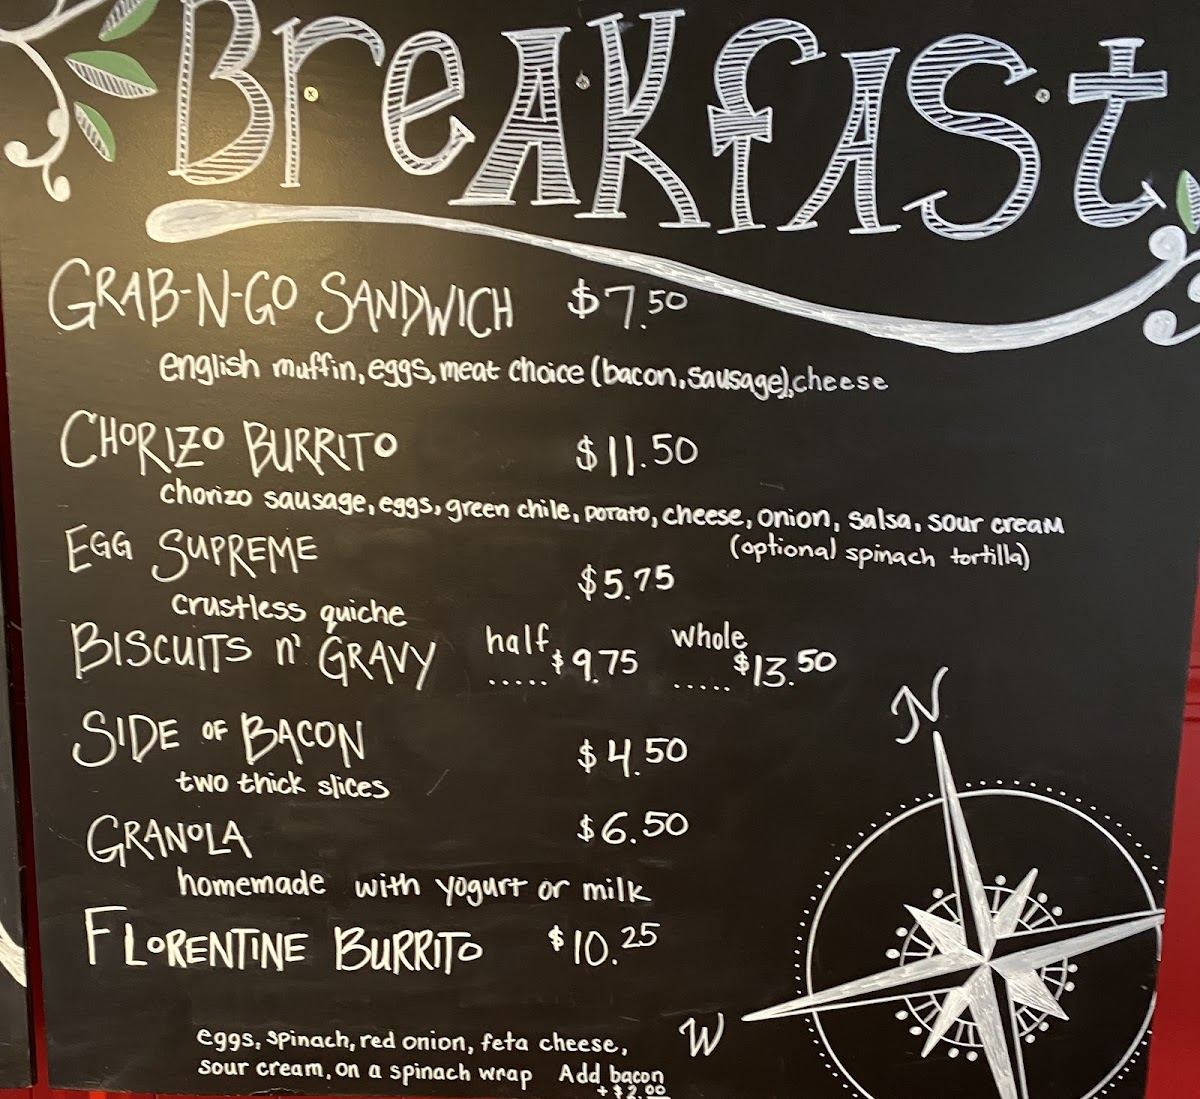 BreakfAst
GRAB-N-GO SANDWICH $7.50
english muffin, eggs, meat choice (bacon, sausage), cheese
CHORIZO BURRITO $11.50
chorizo sausage, eggs, green chile, potato, cheese, onion, salsa, sour cream
(optional spinach tortilla)
EGG SUPREME $5.75
crustless quiche
BISCUITS n' GRAVY half ..... $9.75 whole ..... $13.50
SIDE OF BACON $4.50
two thick slices
GRANOLA $6.50
homemade with yogurt or milk
FLORENTINE BURRITO $10.25
eggs, spinach, red onion, feta cheese,
sour cream, on a spinach wrap Add bacon
+ $2.00
N
W